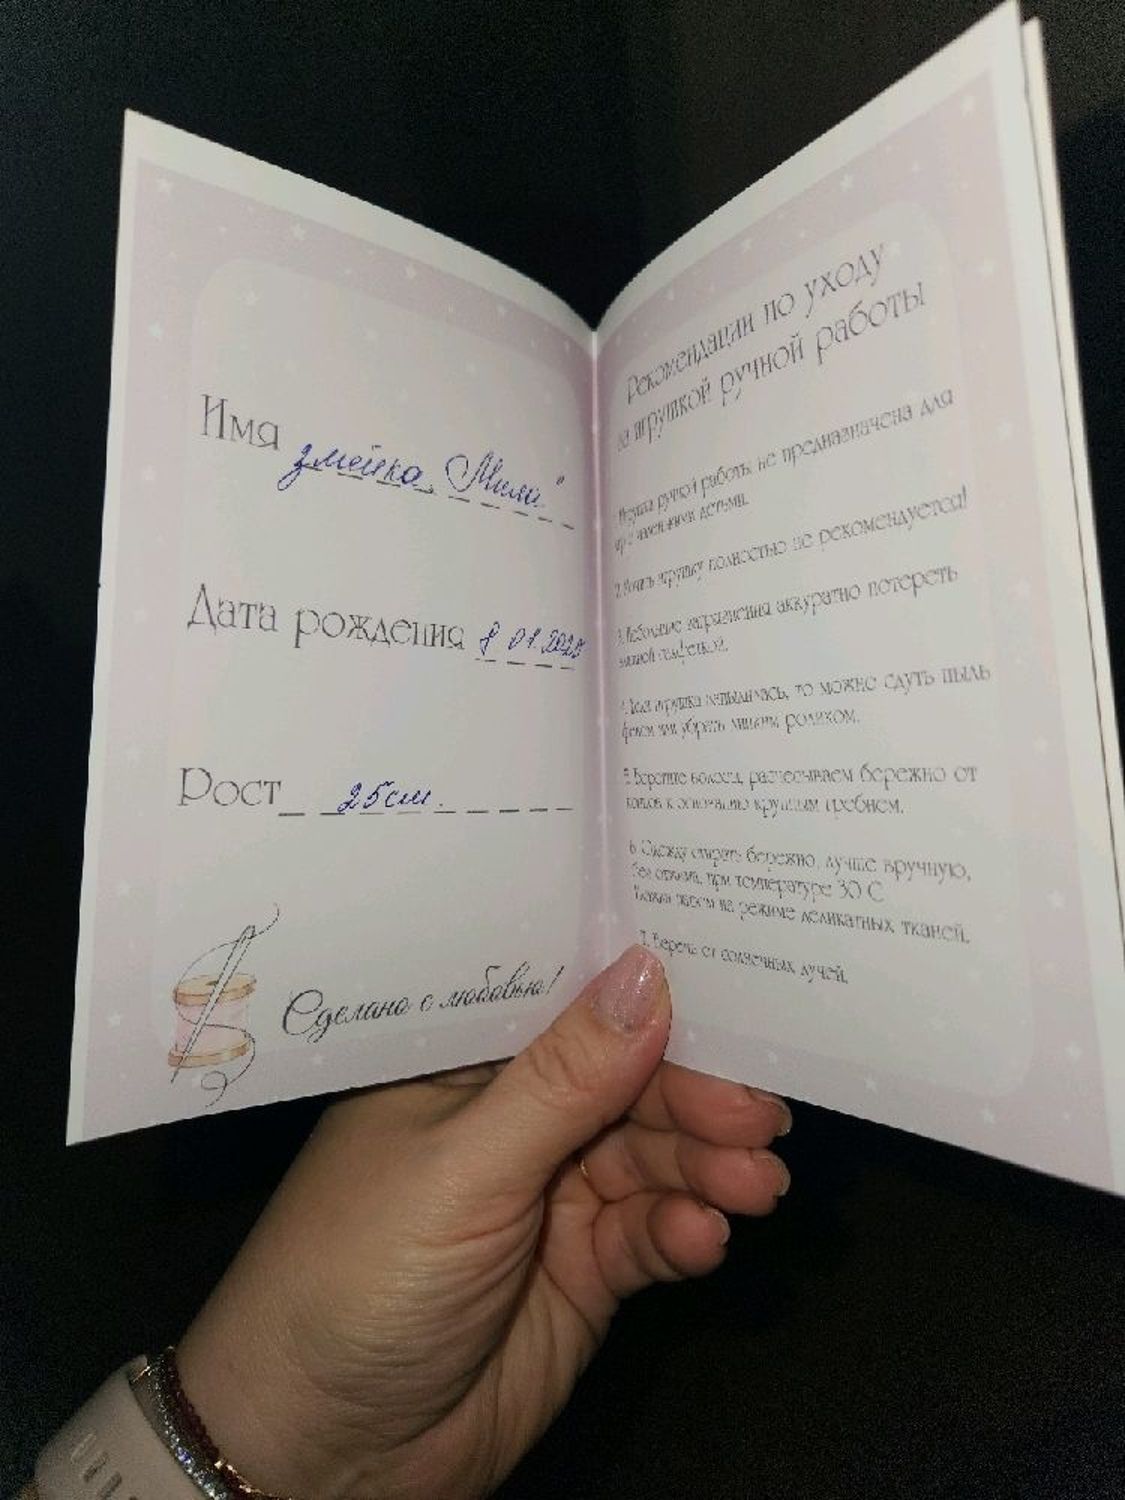 Имя змейка „Мила"
Дата рождения 8 01.2025
Рост 25см.
Сделано с любовью!
Рекомендации по уходу
за игрушкой ручной работы
1. Игрушка ручной работы не предназначена для
игр с маленькими детьми.
2. Мочить игрушку полностью не рекомендуется!
3. Небольшие загрязнения аккуратно потереть
влажной салфеткой.
4. Если игрушка запылилась, то можно сдуть пыль
феном или убрать липким роликом.
5. Берегите волосы, расчесываем бережно от
концов к основанию крупным гребнем.
6. Одежду стирать бережно, лучше вручную,
без отжима, при температуре 30 С
паром на режиме деликатных тканей.
7. Беречь от солнечных лучей.